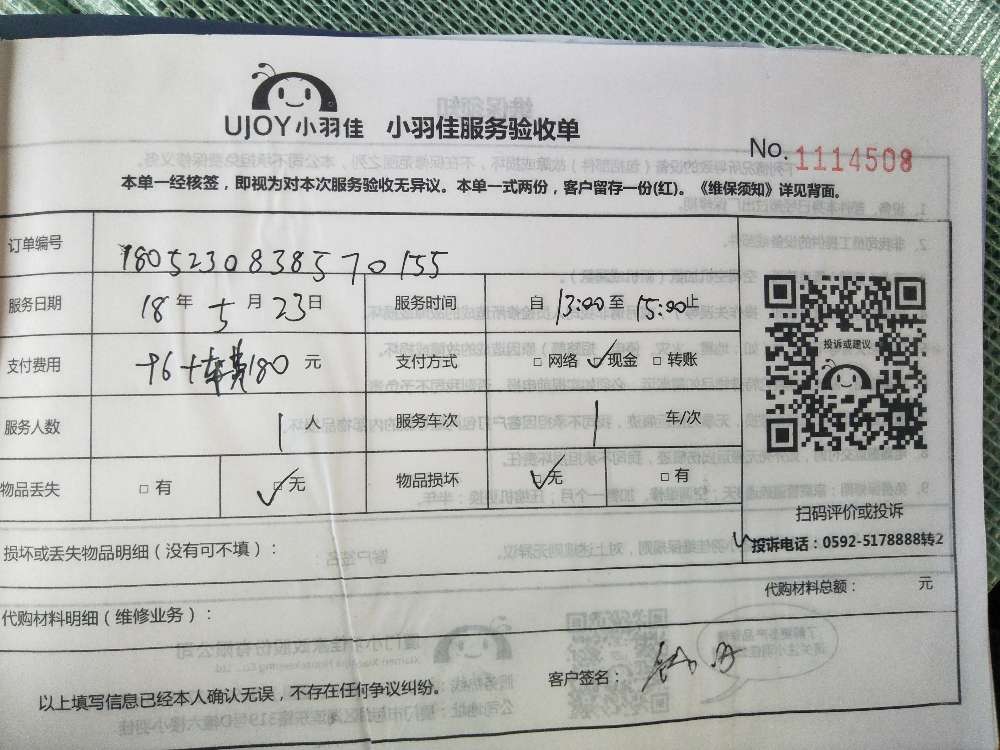 UJOY小羽佳 小羽佳服务验收单
No. 1114508
本单一经核签，即视为对本次服务验收无异议。本单一式两份，客户留存一份(红)。《维保须知》详见背面。
订单编号 1805230838570155
服务日期 18年5月23日 服务时间 自13:00至15:00止
支付费用 96+车费180元 支付方式 □网络 ☑现金 □转账
服务人数 1人 服务车次 1 车/次
物品丢失 □有 ☑无 物品损坏 ☑无 □有
投诉或建议
扫码评价或投诉
投诉电话：0592-5178888转2
损坏或丢失物品明细（没有可不填）：
代购材料明细（维修业务）： 代购材料总额： 元
以上填写信息已经本人确认无误，不存在任何争议纠纷。 客户签名：